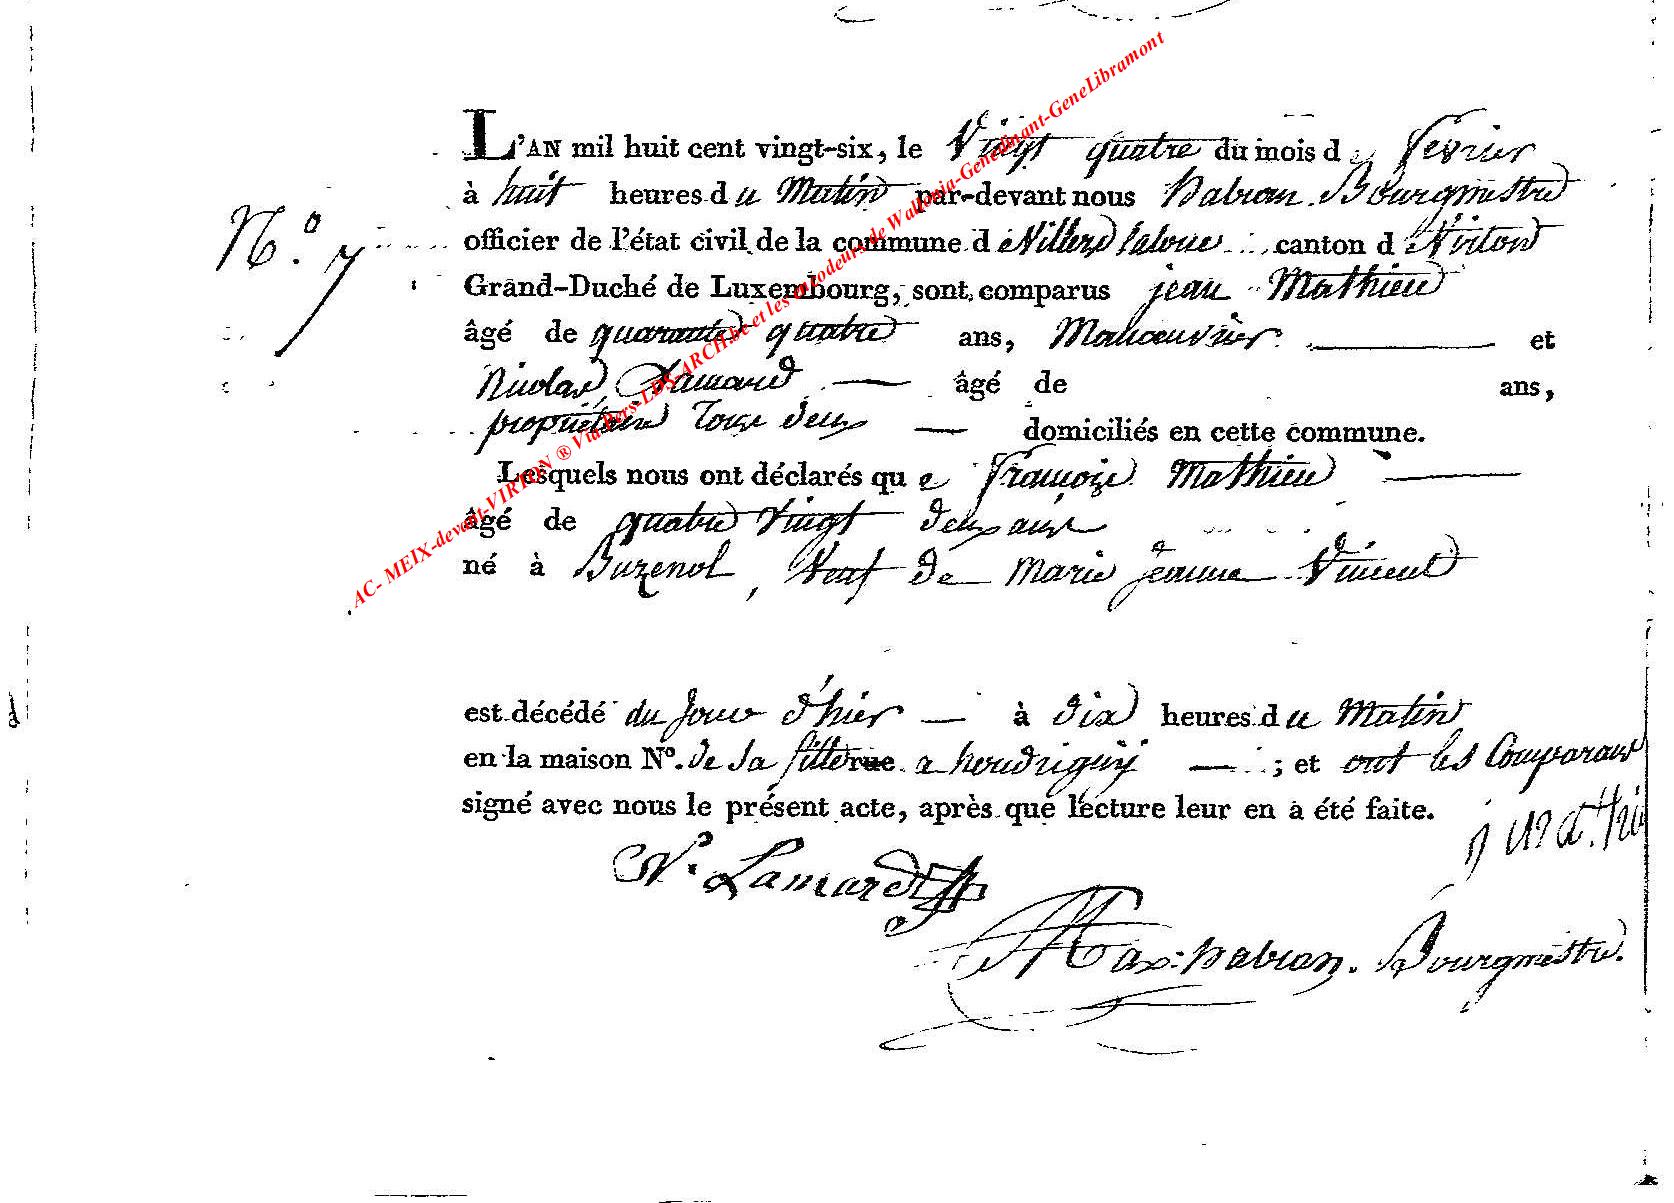 L'AN mil huit cent vingt-six, le Vingt quatre du mois de fevrier
à huit heures du Matin par-devant nous habran Bourgmestre
officier de l'état civil de la commune d Villers laloue canton d Virton
Grand-Duché de Luxembourg, sont comparus jean Mathieu
N.o 7
âgé de quarante quatre ans, Manoeuvrier et
Nicolas Lamard âgé de ans,
propriétaire Tous deux domiciliés en cette commune.
Lesquels nous ont déclarés que françois Mathieu
âgé de quatre Vingt deux ans
né à Buzenol, Veuf de Marie jeanne Vincent
est décédé du jour d'hier à dix heures du Matin
en la maison No. de Sa fille rue a houdrigny ; et ont les Comparans
signé avec nous le présent acte, après que lecture leur en a été faite.
j mathi
N. Lamard
Max: habran. Bourgmestre.
AC- MEIX-devant-VIRTON ® Via Pers-LDS-ARCH.be et les encodeurs de Wallonia-Genedinant-GeneLibramont